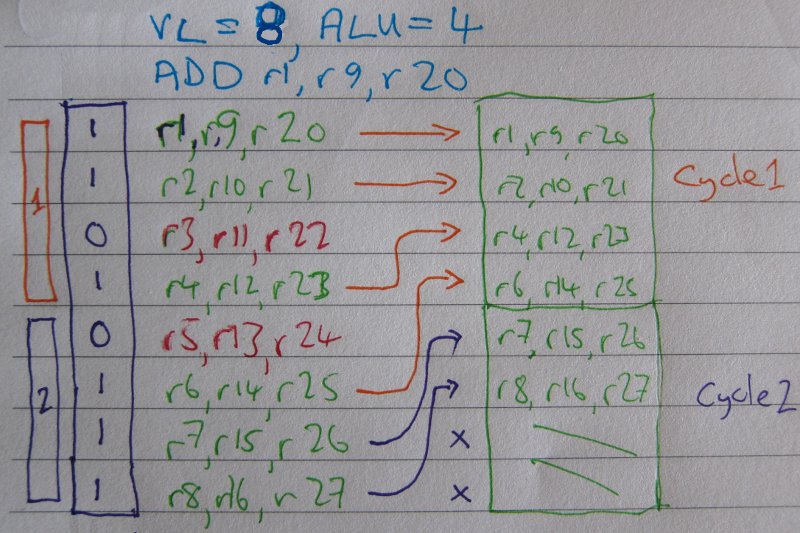 VL = 8, ALU = 4
ADD r1, r9, r20
1 r1, r9, r20 r1, r9, r20
1 r2, r10, r21 r2, r10, r21 Cycle1
1 0 r3, r11, r22 r4, r12, r23
1 r4, r12, r23 r6, r14, r25
0 r5, r13, r24 r7, r15, r26
2 1 r6, r14, r25 r8, r16, r27 Cycle2
1 r7, r15, r26 x
1 r8, r16, r27 x